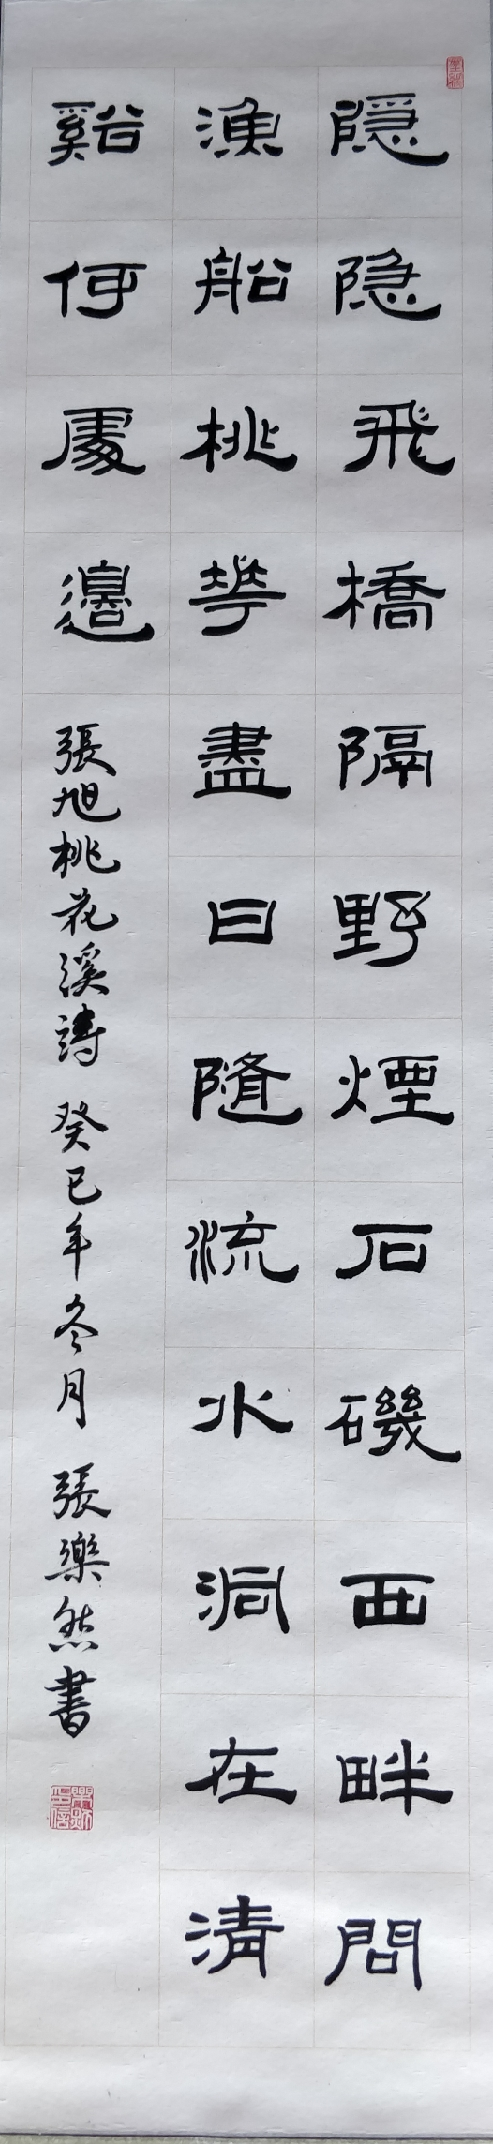 隱隱飛橋隔野煙石磯西畔問
漁船桃花盡日隨流水洞在清
谿何處邊
張旭桃花溪詩 癸巳年冬月 張樂然書